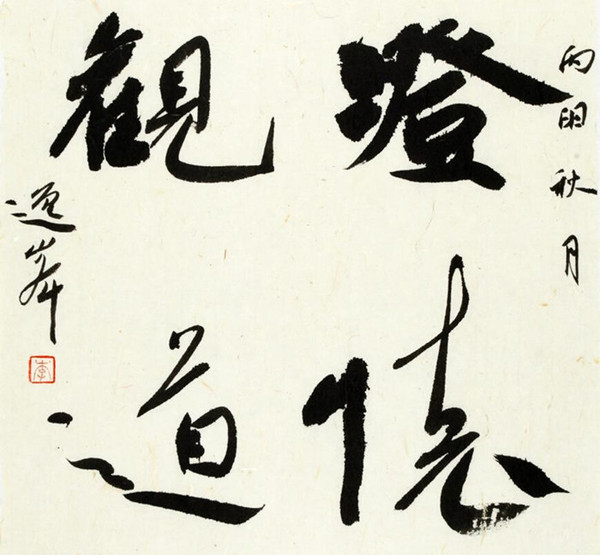 丙申秋月
澄懷
觀道
逸峯
李